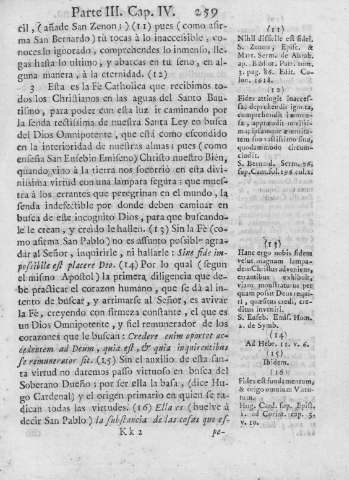 Parte III. Cap. IV. 259
cil, (añade San Zenon;) (11) pues (como asir-
ma San Bernardo) tù tocas à lo inaccesible, co-
noces lo ignorado, comprehendes lo inmenso, lle-
gas hasta lo ultimo, y abarcas en tu seno, en algu-
na manera, à la eternidad. (12)
3 Esta es la Fè Catholica que recibimos to-
dos los Christianos en las aguas del Santo Bau-
tismo, para poder con esta luz ir caminando por
la senda rectissima de nuestra Santa Ley en busca
del Dios Omnipotente, que està como escondido
en la interioridad de nuestras almas; pues (como
enseña San Eusebio Emiseno) Christo nuestro Bien,
quando vino à la tierra nos socorriò en esta divi-
nissima virtud con una lampara segura: que mues-
tra à los errantes que peregrinan en el mundo, la
senda indefectible por donde deben caminar en
busca de este incognito Dios, para que buscando-
le le crean, y creido le hallen. (13) Sin la Fè (co-
mo afirma San Pablo) no es assunto possible agra-
dar al Señor, inquirirle, ni hallarle: Sine fide im-
possibile est placere Deo. (14) Por lo qual (segun
el mismo Apostol) la primera diligencia que de-
be practicar el corazon humano, que se dà al in-
tento de buscar, y arrimarse al Señor, es avivar
la Fè, creyendo con firmeza constante, el que es
un Dios Omnipotente, y fiel remunerador de los
corazones que le buscan: Credere enim oportet ac-
cedentem ad Deum, quia est, & quia inquirentibus
se remunerator sit. (15) Sin el auxilio de esta san-
ta virtud no daremos passo virtuoso en busca del
Soberano Dueño; por ser ella la basa, (dice Hu-
go Cardenal) y el origen primario en quien se ra-
dican todas las virtudes. (16) Ella es (buelve à
decir San Pablo) la substancia de las cosas que es-
Kk 2 pe-
(11)
Nihil difficile est fidei.
S. Zenon, Epist. &
Mart. Serm. de
ap. Bibliot. Patr. tom.
3. pag. 86. Edit. Co-
lon. 1618.
(12)
Fides attingit inacces-
sa, deprehendit ignota,
comprehendit immen-
sa, apprehendit novissi-
ma; ipsamque æternita-
tem suo vastissimo sinu,
quodammodo circum-
cludit.
S. Bernard. Serm. 76.
sup. Cant. fol. 176 col. 2.
(13)
Hanc ergo nobis fidem
velut magnam lampa-
dem Christus adveniens,
errantibus exhibuit,
viam monstraturus per
quam posset Deus requi-
ri, quæsitus credi, cre-
ditus inveniri.
S. Euseb. Emiss. Hom.
2. de Symb.
(14)
Ad Hebr. 11. v. 6.
(15)
Ibidem.
(16)
Fides est fundamentum,
& origo omnium Virtu-
tum.
Hug. Card. sup. Epist.
1. ad Corint. cap. 3.
v. 10.